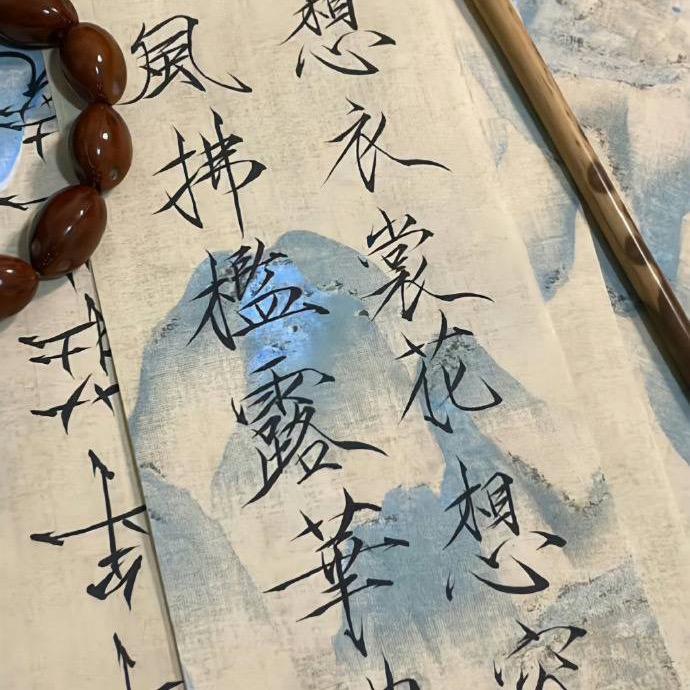 想衣裳花想容
風拂檻露華